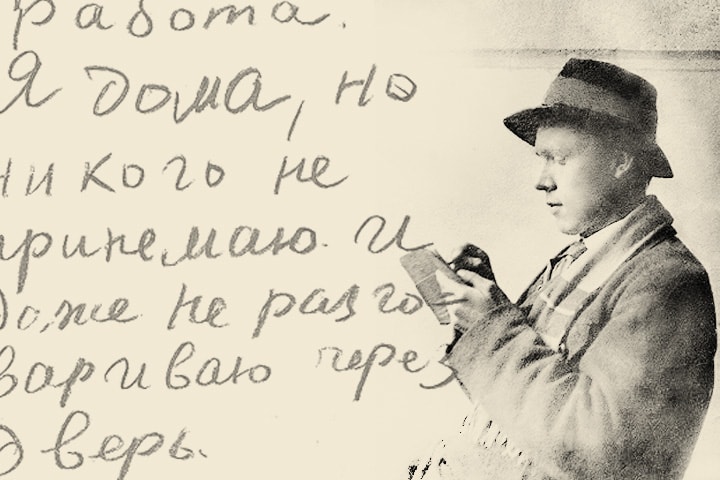 работа.
Я дома, но
никого не
принемаю. И
даже не разго-
вариваю через
дверь.